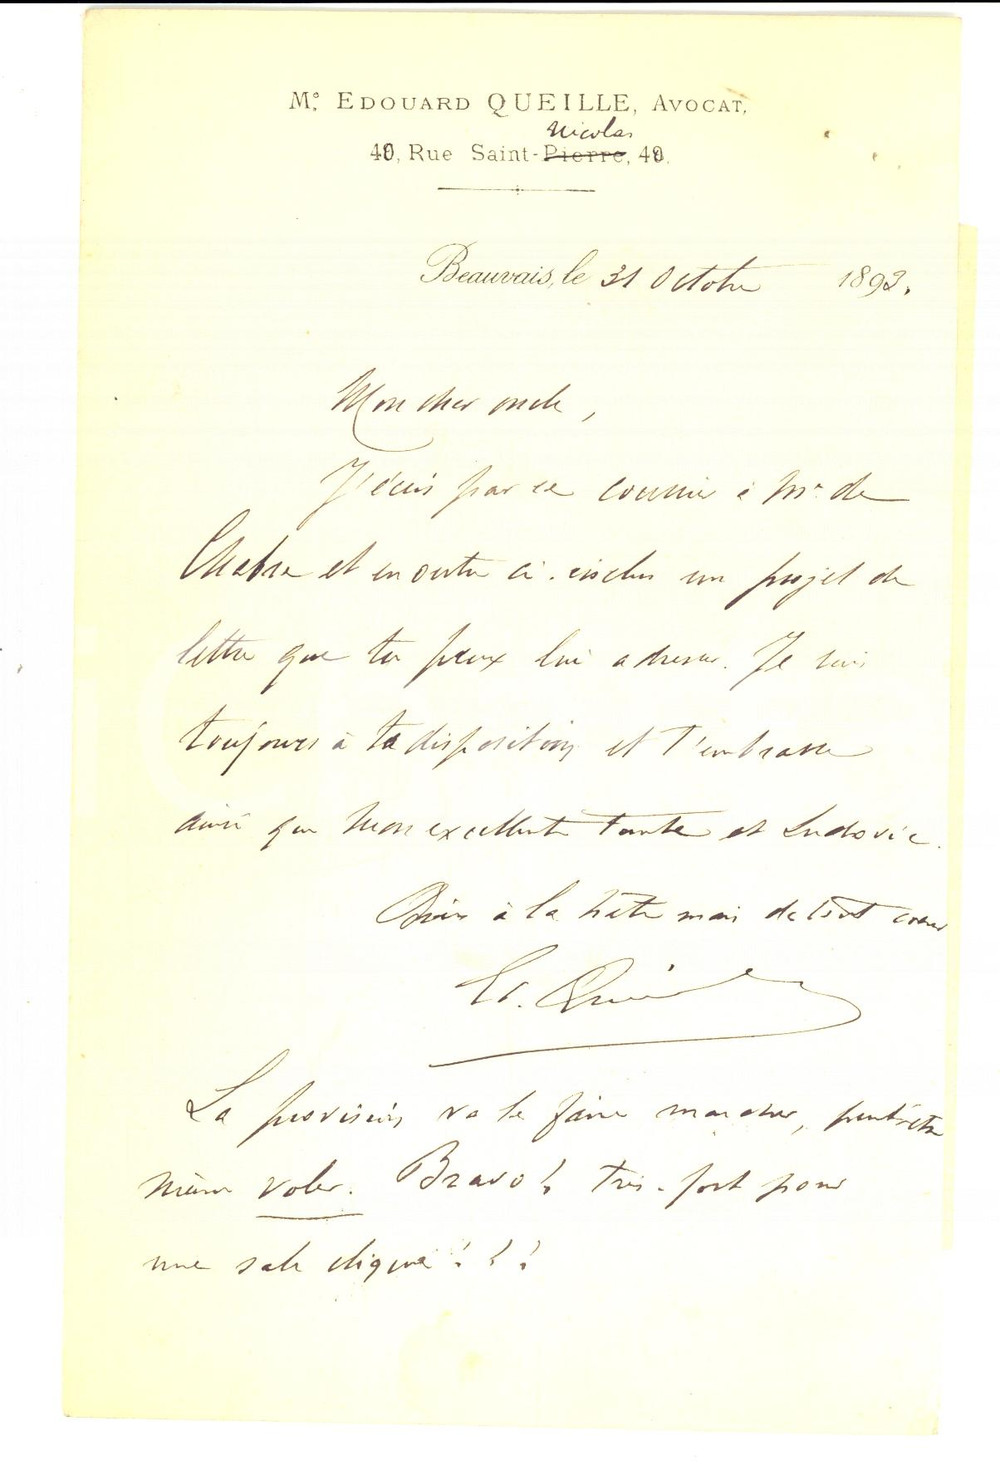 Me EDOUARD QUEILLE, AVOCAT,
Nicolas
40, Rue Saint-Pierre, 40.
Beauvais, le 31 Octobre 1893.
Mon cher oncle,
J'écris par ce courrier à Mr de
et en outre ci-inclus un projet de
lettre que tu peux lui adresser. Je suis
toujours à ta disposition et t'embrasse
ainsi que mon excellente tante et Ludovic.
à la hâte mais de tout coeur
Ed. Queille
La provision va le faire marcher, peut-être
même voler. Bravo! très-fort pour
une sale clique!!!